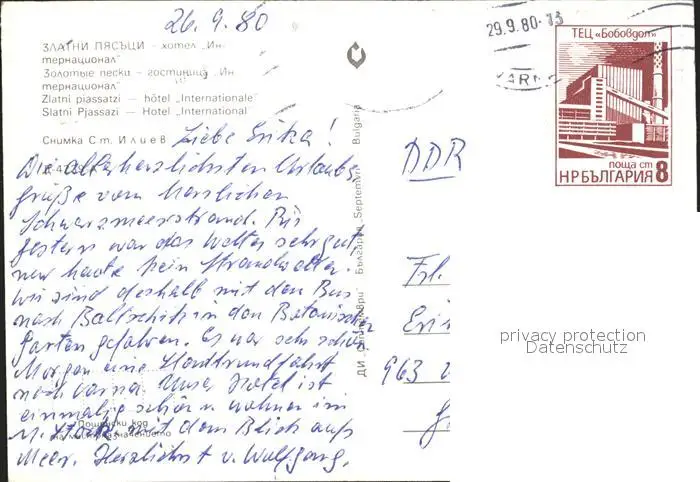 26.9.80
ЗЛАТНИ ПЯСЪЦИ – хотел „Ин-
тернационал"
Золотые пески – гостиница „Ин
тернационал"
Zlatni pjassatzi – hôtel „Internationale"
Slatni Pjassazi – Hotel „International
Снимка Ст. Илиев
Liebe Erika!
Die allerherzlichsten Urlaubs-
grüße vom herrlichen
Schwarzmeerstrand. Bis
gestern war das Wetter sehr gut,
nur heute kein Strandwetter.
Wir sind deshalb mit dem Bus
nach Baltschik in den Botanischen
Garten gefahren. Es war sehr schön.
Morgen eine Stadtrundfahrt
nach Varna. Unser Hotel ist
einmalig schön u. wohnen im
11. Stock mit dem Blick aufs
Meer. Herzlichst v. Wolfgang.
Пощенски код
на местоназначението
ДИ „Септември" България „Septemvri" Bulgaria
29.9.80-13
VARNA
ТЕЦ «Бобовдол»
поща ст 8
НРБЪЛГАРИЯ
DDR
Frl.
Eri
963
privacy protection
Datenschutz